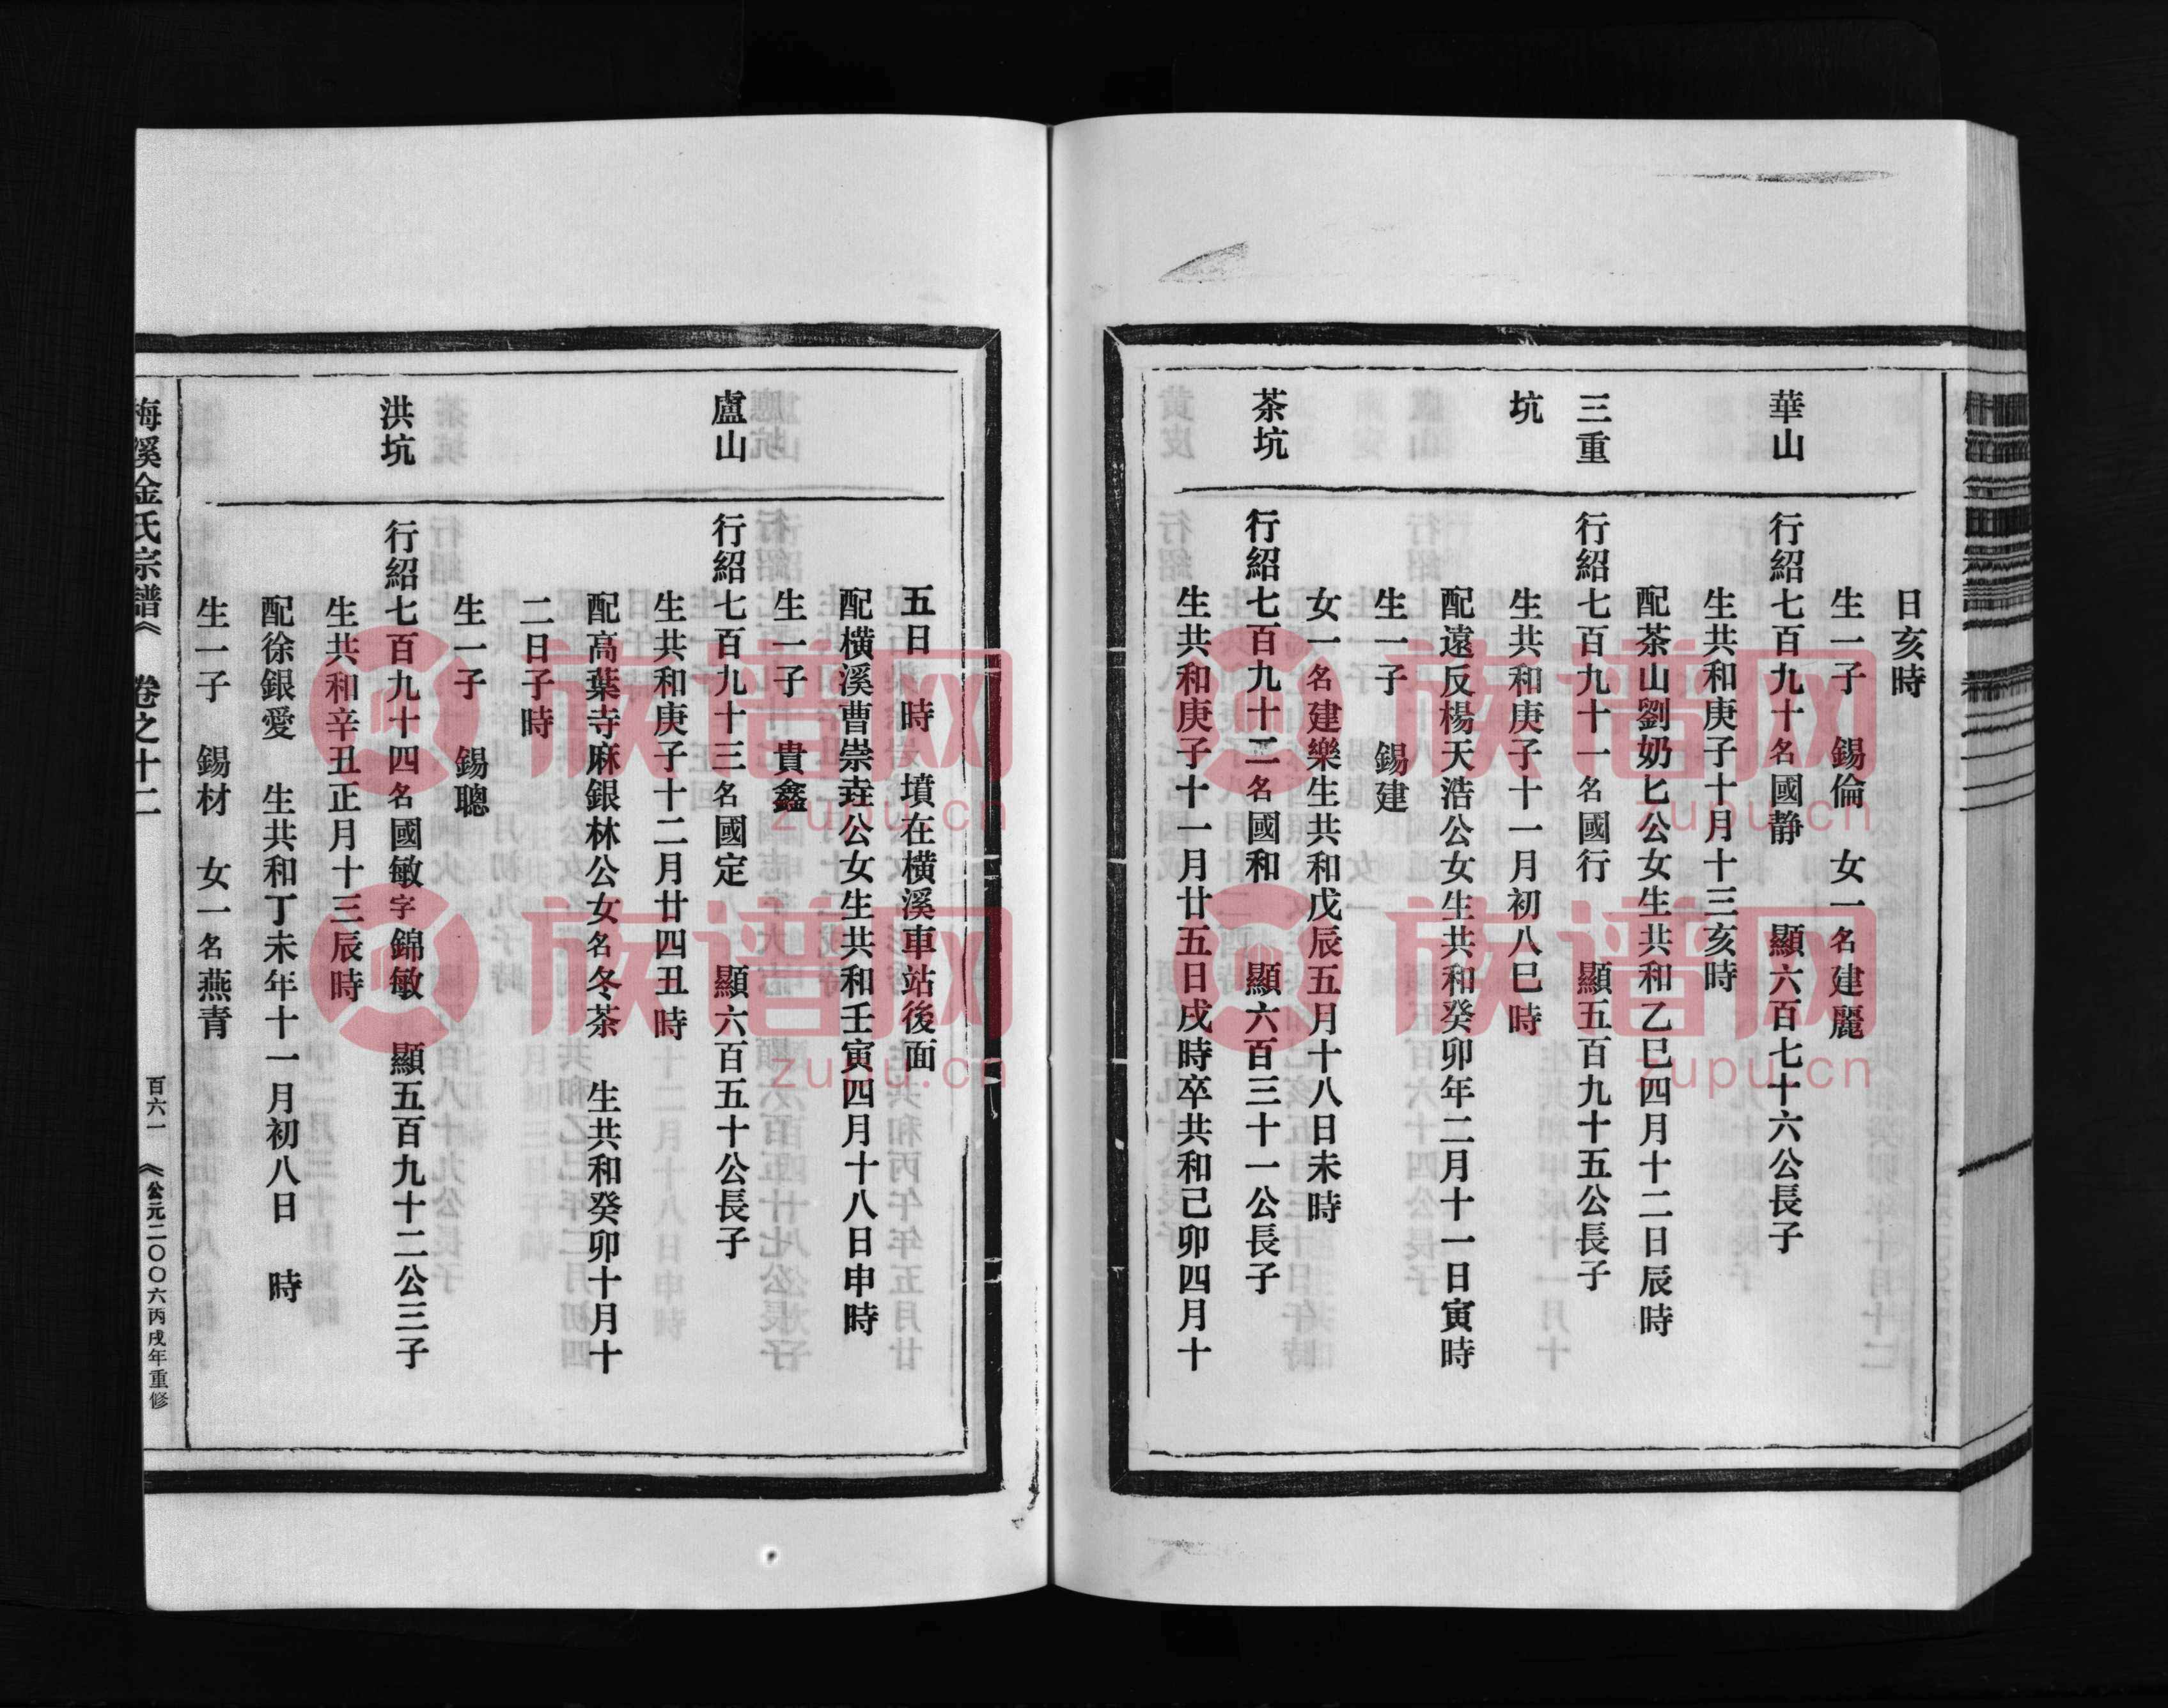 日亥時
生一子　錫倫　女一名建麗
華山　行紹七百九十名國静　顯六百七十六公長子
生共和庚子十月十三亥時
配茶山劉奶匕公女生共和乙巳四月十二日辰時
三重　行紹七百九十一名國行　顯五百九十五公長子
坑　生共和庚子十一月初八巳時
配遠反楊天浩公女生共和癸卯年二月十一日寅時
生一子　錫建
女一名建樂生共和戊辰五月十八日未時
茶坑　行紹七百九十二名國和　顯六百三十一公長子
生共和庚子十一月廿五日戌時卒共和己卯四月十
五日　時　墳在橫溪車站後面
配橫溪曹崇垚公女生共和壬寅四月十八日申時
生一子　貴鑫
盧山　行紹七百九十三名國定　顯六百五十公長子
生共和庚子十二月廿四丑時
配高葉寺麻銀林公女名冬茶　生共和癸卯十月十
二日子時
生一子　錫聰
洪坑　行紹七百九十四名國敏字錦敏　顯五百九十二公三子
生共和辛丑正月十三辰時
配徐銀愛　生共和丁未年十一月初八日　時
生一子　錫材　女一名燕青
梅溪金氏宗譜《　卷之十二　百六一　《公元二〇〇六丙戌年重修
族谱网
zupu.cn
族谱网
zupu.cn
族谱网
zupu.cn
族谱网
zupu.cn